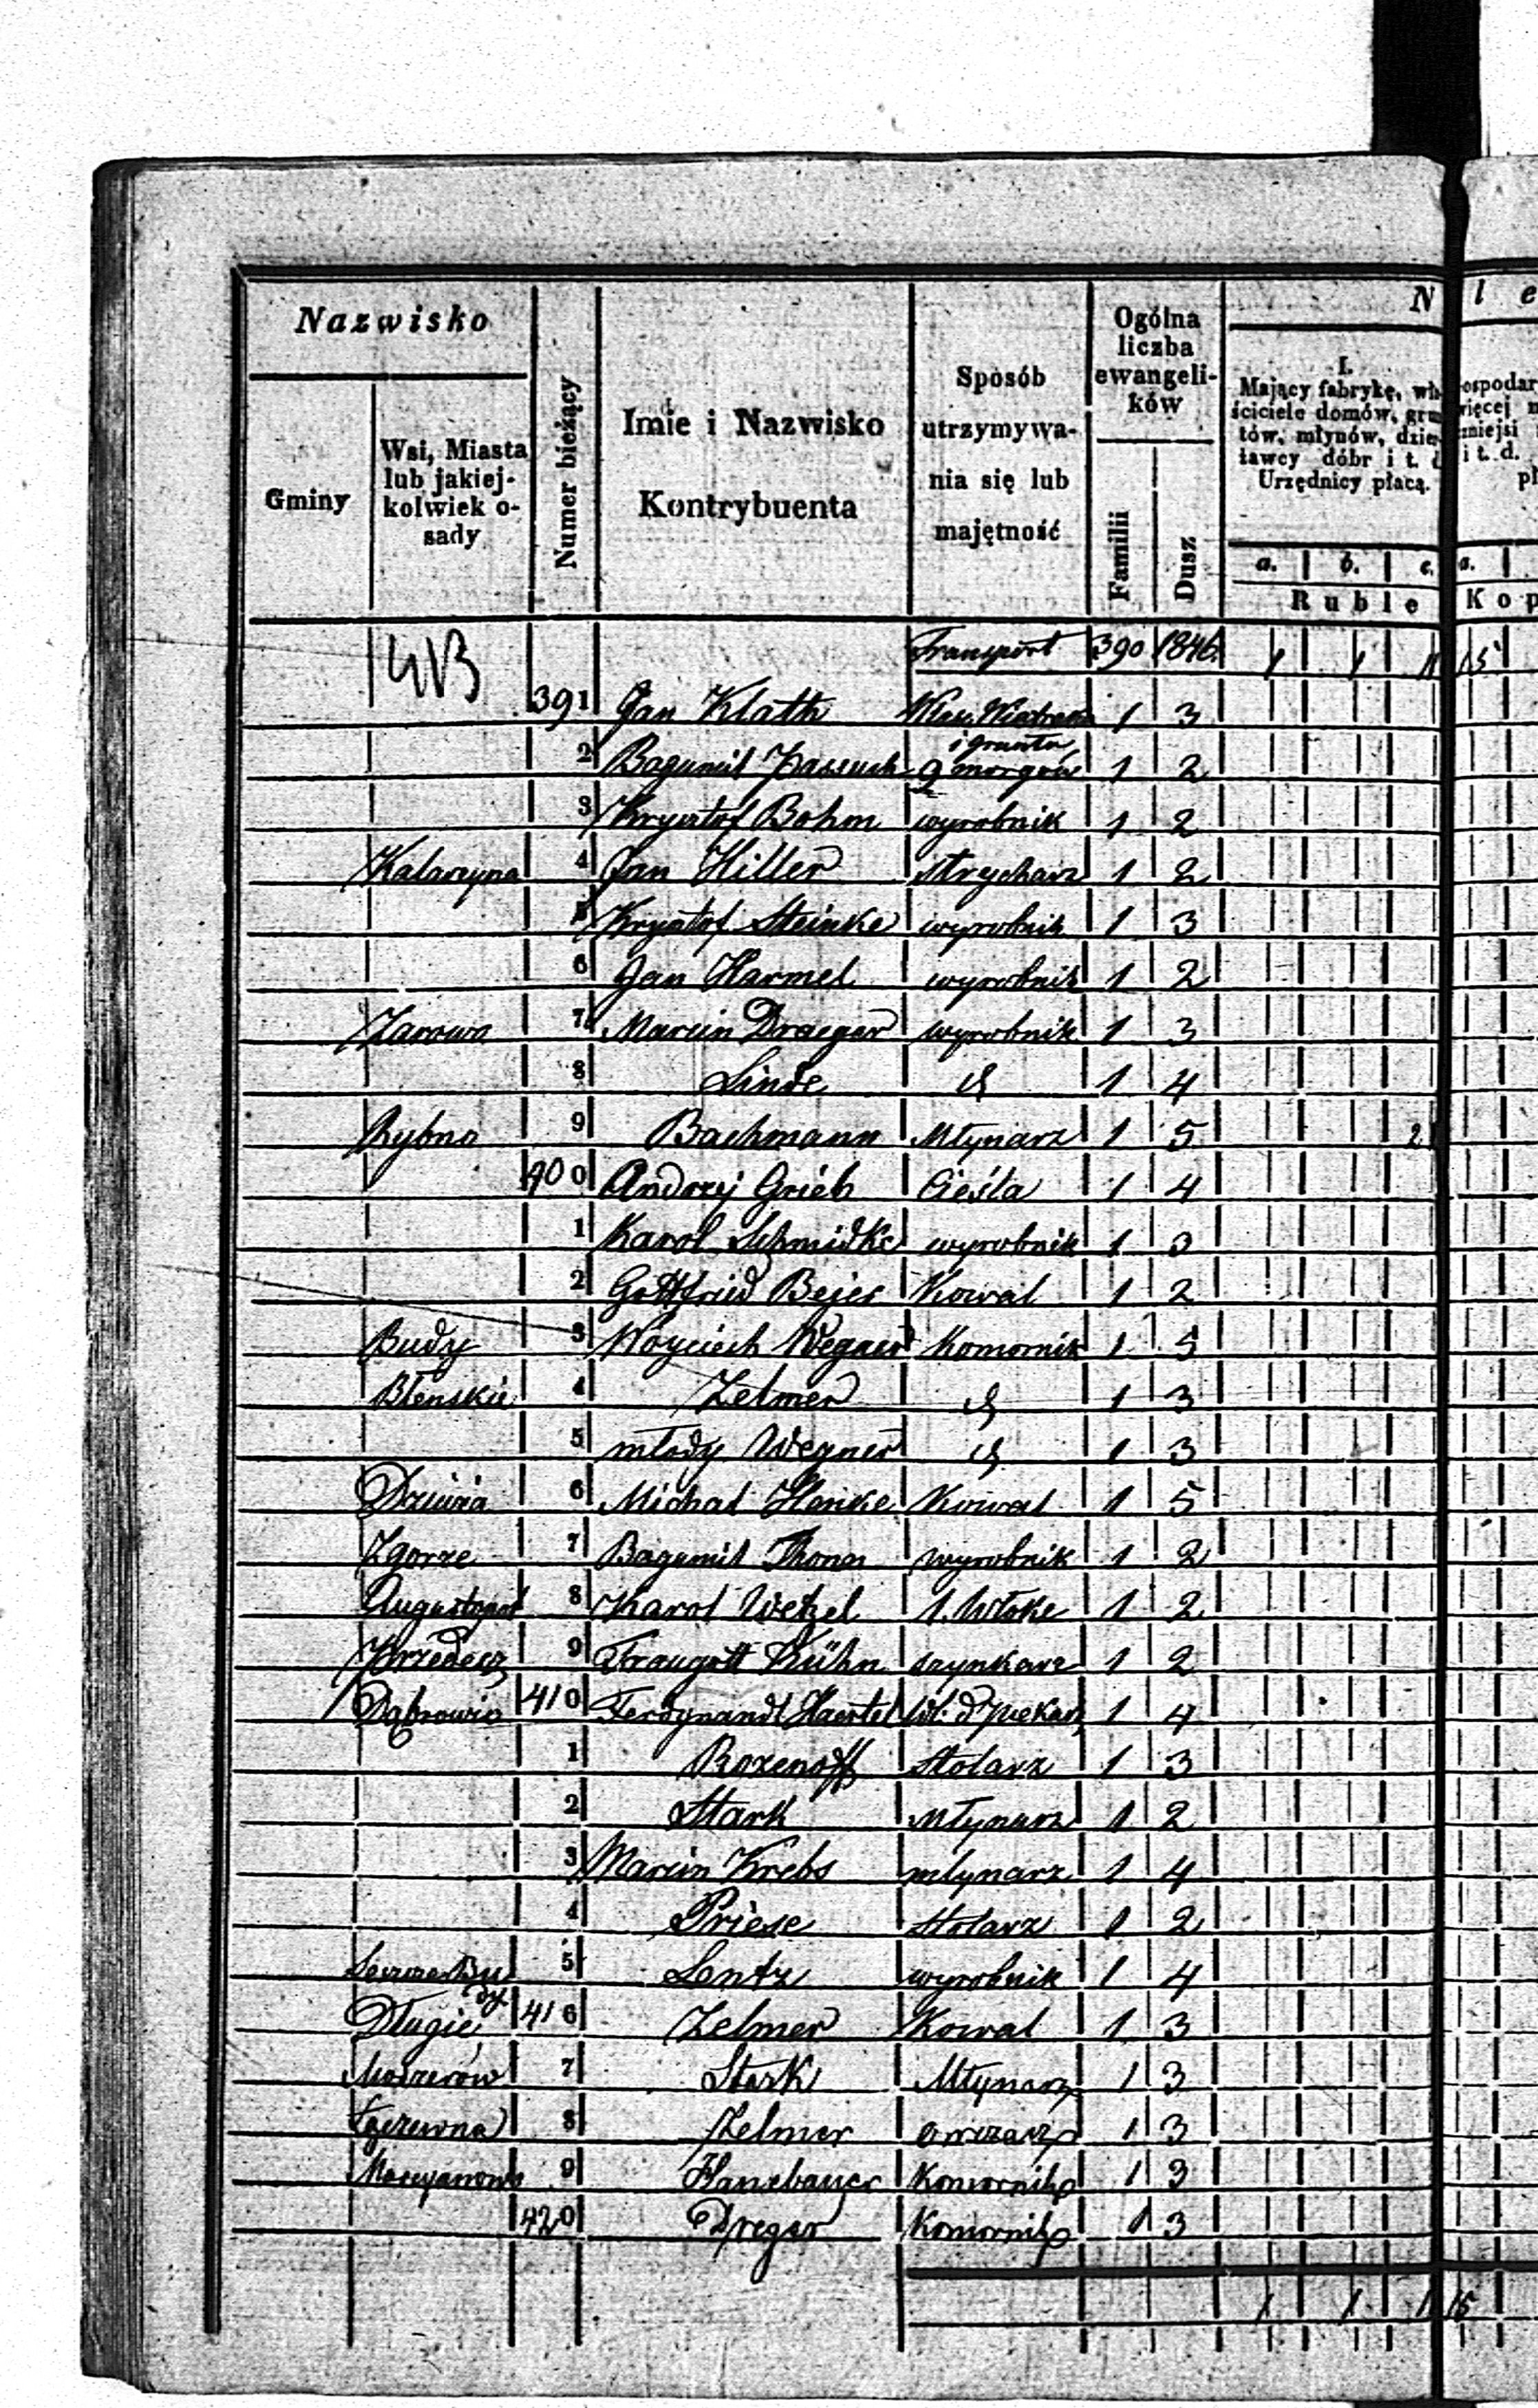 Nazwisko
Gminy
Wsi, Miasta
lub jakiej-
kolwiek o-
sady
Numer bieżący
Imie i Nazwisko
Kontrybuenta
Sposób
utrzymywa-
nia się lub
majętność
Ogólna
liczba
ewangeli-
ków
Familii
Dusz
N l e
I.
Mający fabrykę, wła-
ściciele domów, grun
tów, młynów, dzier
ławcy dóbr i t. d
Urzędnicy płacą.
ospodar
więcej
mniejsi
i t. d.
pł
a. b. c. a.
Ruble Kop
Transport 390 1846 1 1 15
391 Jan Klath 1 3
i gruntu
2 Bogumil Passuch 9 morgów 1 2
3 Krysztof Bohm wyrobnik 1 2
Katarzyna 4 Jan Hiller strycharz 1 2
5 Krysztof Steinke wyrobnik 1 3
6 Jan Harmel wyrobnik 1 2
Zarowo 7 Marcin Draeger wyrobnik 1 3
8 Linde 1 4
Rybno 9 Bachmann Młynarz 1 5 2
400 Andrzej Grieb Cieśla 1 4
1 Karol Schmidke wyrobnik 1 3
2 Gottfried Bejer Kowal 1 2
Budy 3 Woyciech Wegner Komornik 1 5
Błenskie 4 Zelmer 1 3
5 młody Wegner 1 3
6 Michał Henke Kowal 1 5
Zgorze 7 Bogumil Thonn wyrobnik 1 2
Augustopol 8 Karol Wetzel 1. Włoke 1 2
Krzedecz 9 Traugott Kühn szynkarz 1 2
Dąbrowic 410 Ferdynandt Haertel 1 4
1 Rozenoff Stolarz 1 3
2 Stark Młynarz 1 2
3 Marcin Krebs młynarz 1 4
4 Priese Stolarz 1 2
5 Lentz wyrobnik 1 4
Długie 416 Zelmer Kowal 1 3
7 Stark Młynarz 1 3
8 Zelmer owczarz 1 3
Maryanowo 9 Hanzbauer Komornik 1 3
420 Dreger Komornik 1 3
1 1 15